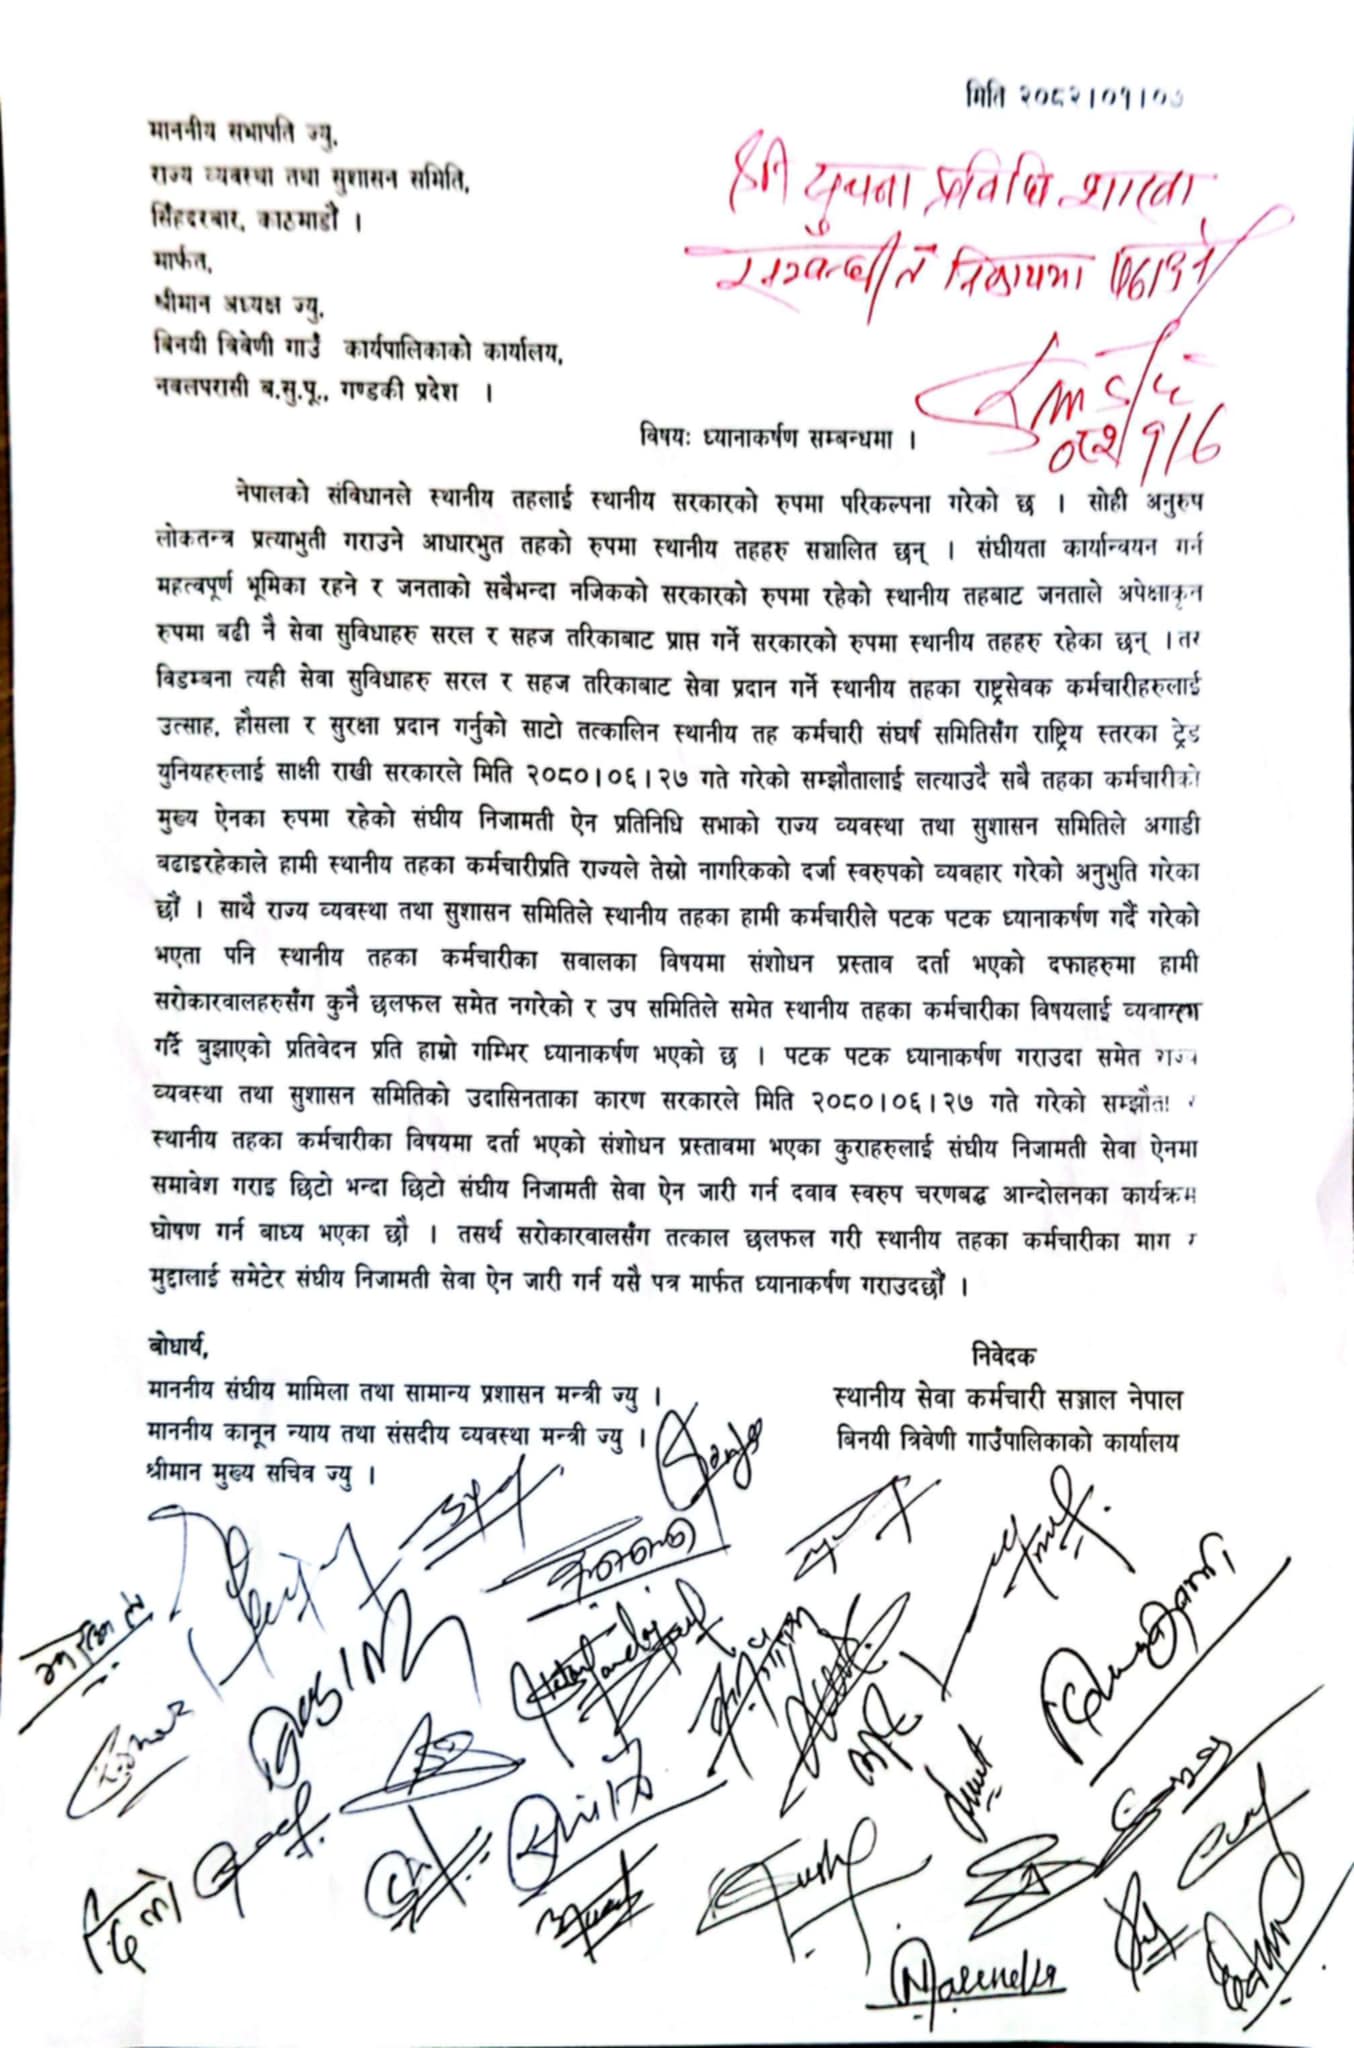 मिति २०८२।०१।०७
माननीय सभापति ज्यु,
राज्य व्यवस्था तथा सुशासन समिति,
सिंहदरबार, काठमाडौं ।
मार्फत,
श्रीमान अध्यक्ष ज्यु,
बिनयी त्रिवेणी गाउँ कार्यपालिकाको कार्यालय,
नवलपरासी ब.सु.पू., गण्डकी प्रदेश ।
श्री सुचना प्रविधि शाखा
सम्बन्धीत निकायमा पठाउने
विषयः ध्यानाकर्षण सम्बन्धमा ।
नेपालको संविधानले स्थानीय तहलाई स्थानीय सरकारको रुपमा परिकल्पना गरेको छ । सोही अनुरुप
लोकतन्त्र प्रत्याभुती गराउने आधारभुत तहको रुपमा स्थानीय तहहरु सञ्चालित छन् । संघीयता कार्यान्वयन गर्न
महत्वपूर्ण भूमिका रहने र जनताको सबैभन्दा नजिकको सरकारको रुपमा रहेको स्थानीय तहबाट जनताले अपेक्षाकृत
रुपमा बढी नै सेवा सुविधाहरु सरल र सहज तरिकाबाट प्राप्त गर्ने सरकारको रुपमा स्थानीय तहहरु रहेका छन् । तर
बिडम्बना त्यही सेवा सुविधाहरु सरल र सहज तरिकाबाट सेवा प्रदान गर्ने स्थानीय तहका राष्ट्रसेवक कर्मचारीहरुलाई
उत्साह, हौसला र सुरक्षा प्रदान गर्नुको साटो तत्कालिन स्थानीय तह कर्मचारी संघर्ष समितिसँग राष्ट्रिय स्तरका ट्रेड
युनियहरुलाई साक्षी राखी सरकारले मिति २०८०।०६।२७ गते गरेको सम्झौतालाई लत्याउदै सबै तहका कर्मचारीको
मुख्य ऐनका रुपमा रहेको संघीय निजामती ऐन प्रतिनिधि सभाको राज्य व्यवस्था तथा सुशासन समितिले अगाडी
बढाइरहेकाले हामी स्थानीय तहका कर्मचारीप्रति राज्यले तेस्रो नागरिकको दर्जा स्वरुपको व्यवहार गरेको अनुभुति गरेका
छौं । साथै राज्य व्यवस्था तथा सुशासन समितिले स्थानीय तहका हामी कर्मचारीले पटक पटक ध्यानाकर्षण गर्दै गरेको
भएता पनि स्थानीय तहका कर्मचारीका सवालका विषयमा संशोधन प्रस्ताव दर्ता भएको दफाहरुमा हामी
सरोकारवालहरुसँग कुनै छलफल समेत नगरेको र उप समितिले समेत स्थानीय तहका कर्मचारीका विषयलाई
गर्दै बुझाएको प्रतिवेदन प्रति हाम्रो गम्भिर ध्यानाकर्षण भएको छ । पटक पटक ध्यानाकर्षण गराउदा समेत राज्य
व्यवस्था तथा सुशासन समितिको उदासिनताका कारण सरकारले मिति २०८०।०६।२७ गते गरेको सम्झौता र
स्थानीय तहका कर्मचारीका विषयमा दर्ता भएको संशोधन प्रस्तावमा भएका कुराहरुलाई संघीय निजामती सेवा ऐनमा
समावेश गराइ छिटो भन्दा छिटो संघीय निजामती सेवा ऐन जारी गर्न दवाव स्वरुप चरणबद्ध आन्दोलनका कार्यक्रम
घोषण गर्न बाध्य भएका छौ । तसर्थ सरोकारवालसँग तत्काल छलफल गरी स्थानीय तहका कर्मचारीका माग र
मुद्दालाई समेटेर संघीय निजामती सेवा ऐन जारी गर्न यसै पत्र मार्फत ध्यानाकर्षण गराउदछौं ।
बोधार्थ,
माननीय संघीय मामिला तथा सामान्य प्रशासन मन्त्री ज्यु ।
माननीय कानून न्याय तथा संसदीय व्यवस्था मन्त्री ज्यु ।
श्रीमान मुख्य सचिव ज्यु ।
निवेदक
स्थानीय सेवा कर्मचारी सञ्जाल नेपाल
बिनयी त्रिवेणी गाउँपालिकाको कार्यालय